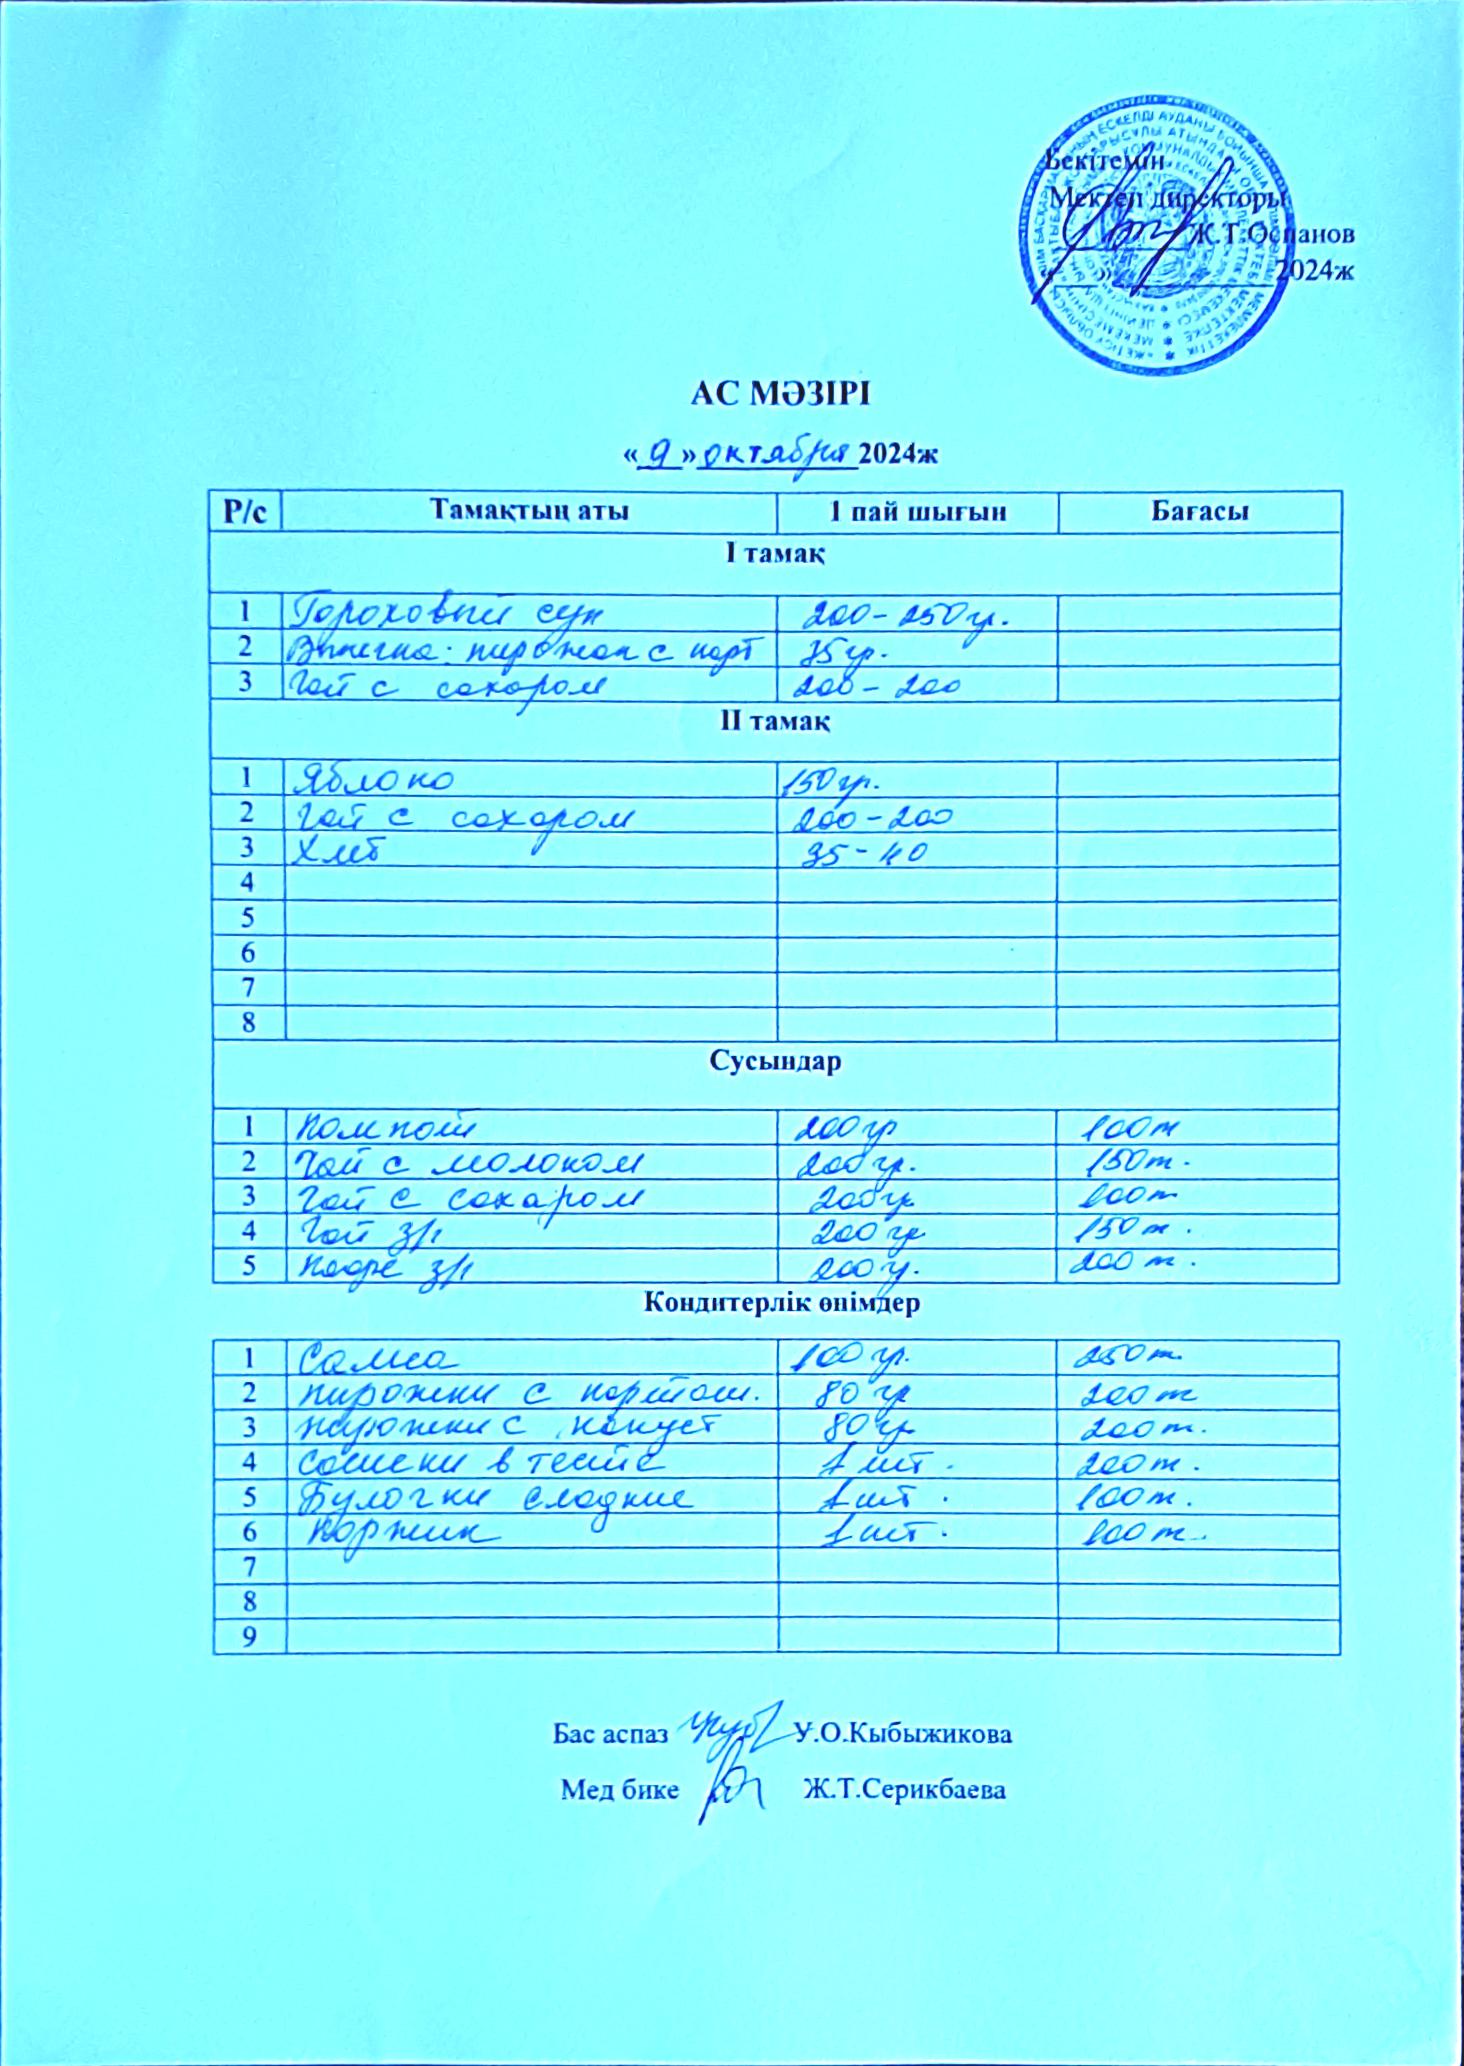 Бекітемін
Мектеп директоры
Ж.Т.Оспанов
«___»__________2024ж
АС МӘЗІРІ
«9» октября 2024ж
Р/с Тамақтың аты 1 пай шығын Бағасы
I тамақ
1 Гороховый суп 200-250гр.
2 Выпечка: пирожок с карт 75гр.
3 Чай с сахаром 200-200
II тамақ
1 Яблоко 150гр.
2 Чай с сахаром 200-200
3 Хлеб 35-40
4
5
6
7
8
Сусындар
1 Компот 200гр 100т
2 Чай с молоком 200гр. 150т.
3 Чай с сахаром 200гр 100т
4 Чай 3/1 200гр 150т.
5 Кофе 3/1 200г. 200т.
Кондитерлік өнімдер
1 Самса 100гр. 250т.
2 пирожки с картош. 80гр 200т
3 пирожки с капуст 80гр 200т.
4 Сосиски в тесте 1шт. 200т.
5 Булочки сладкие 1шт. 100т.
6 Коржик 1шт. 100т.
7
8
9
Бас аспаз У.О.Кыбыжикова
Мед бике Ж.Т.Серикбаева